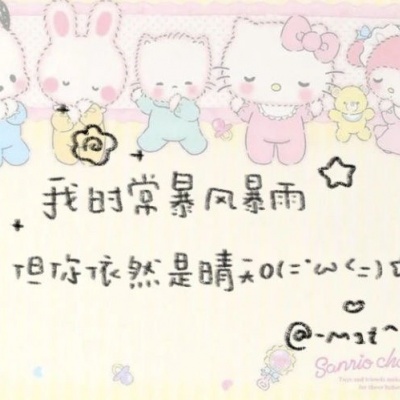 我时常暴风暴雨
但你依然是晴天o(=·ω<=)☆
@-mat^
Sanrio cha